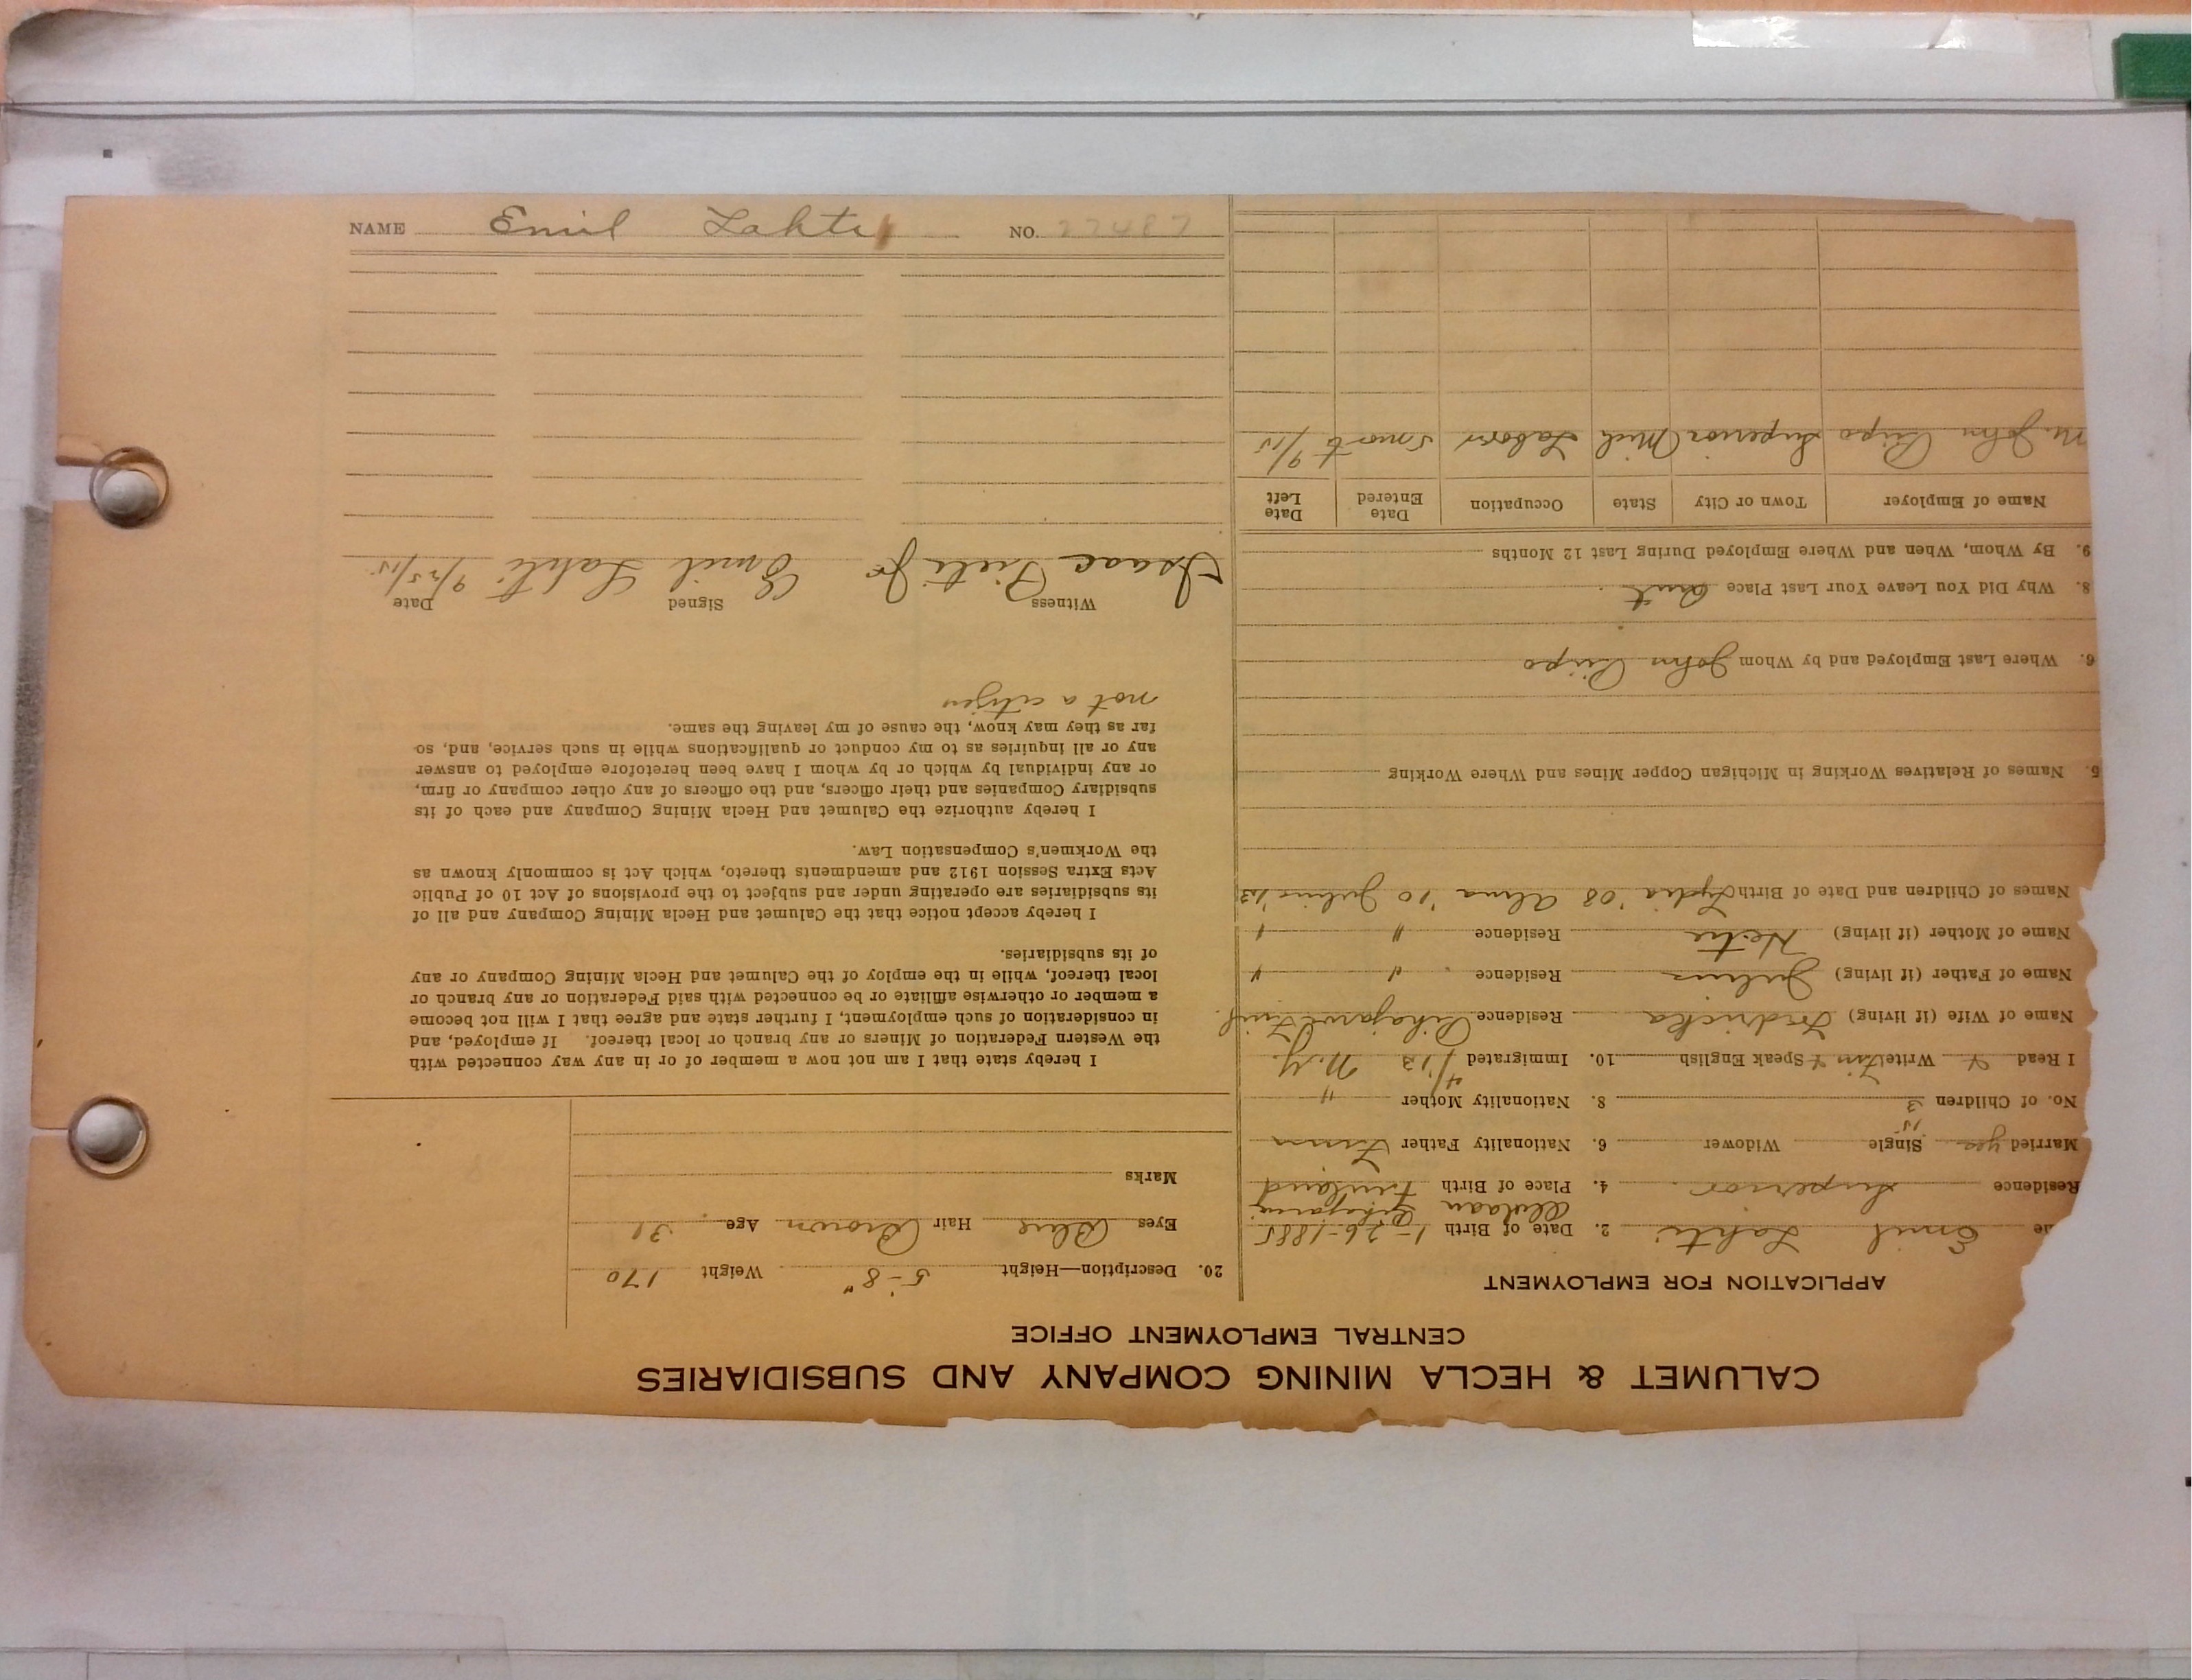 CALUMET & HECLA MINING COMPANY AND SUBSIDIARIES
CENTRAL EMPLOYMENT OFFICE
APPLICATION FOR EMPLOYMENT
Emil Lahti 2. Date of Birth 1-26-1885
Residence Superior 4. Place of Birth Finland
Married yes Single Widower 6. Nationality Father Finn
15
No. of Children 3 8. Nationality Mother "
I Read Write Finn Speak English 10. Immigrated 4/13 N.Y.
Name of Wife (if living) Fredricka Residence
Name of Father (if living) Julius Residence " "
Name of Mother (if living) Residence " "
Names of Children and Date of Birth Lydia '08 Alma '10 Julius '13
5. Names of Relatives Working in Michigan Copper Mines and Where Working
6. Where Last Employed and by Whom John
8. Why Did You Leave Your Last Place
9. By Whom, When and Where Employed During Last 12 Months
Name of Employer Town or City State Occupation Date Entered Date Left
John Superior Mich Labor 5 mont 9/15
20. Description—Height 5-8" Weight 170
Eyes Blue Hair Brown Age 31
Marks
I hereby state that I am not now a member of or in any way connected with
the Western Federation of Miners or any branch or local thereof. If employed, and
in consideration of such employment, I further state and agree that I will not become
a member or otherwise affiliate or be connected with said Federation or any branch or
local thereof, while in the employ of the Calumet and Hecla Mining Company or any
of its subsidiaries.
I hereby accept notice that the Calumet and Hecla Mining Company and all of
its subsidiaries are operating under and subject to the provisions of Act 10 of Public
Acts Extra Session 1912 and amendments thereto, which Act is commonly known as
the Workmen's Compensation Law.
I hereby authorize the Calumet and Hecla Mining Company and each of its
subsidiary Companies and their officers, and the officers of any other company or firm,
or any individual by which or by whom I have been heretofore employed to answer
any or all inquiries as to my conduct or qualifications while in such service, and, so
far as they may know, the cause of my leaving the same.
not a citizen
Witness Signed Date
Isaac Emil Lahti 9/25/15
NAME Emil Lahti NO. 27487